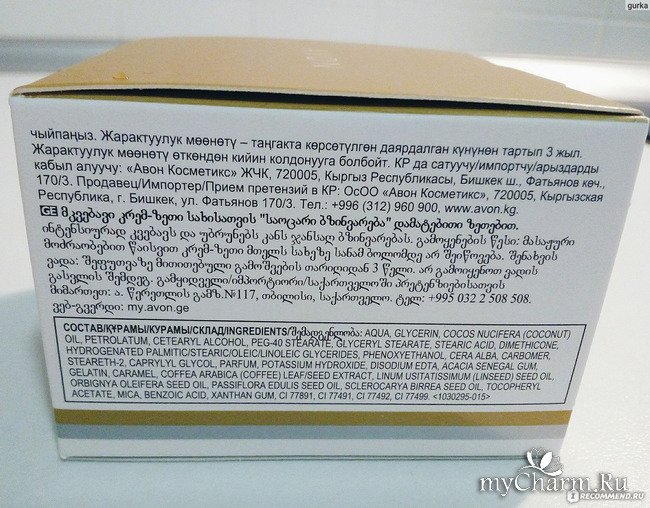 gurka
чыйпаңыз. Жарактуулук мөөнөтү – таңгакта көрсөтүлгөн даярдалган күнүнөн тартып 3 жыл.
Жарактуулук мөөнөтү өткөндөн кийин колдонууга болбойт. КР да сатуучу/импортчу/арыздарды
кабыл алуучу: «Авон Косметикс» ЖЧК, 720005, Кыргыз Республикасы, Бишкек ш., Фатьянов көч.,
170/3. Продавец/Импортер/Прием претензий в КР: ОсОО «Авон Косметикс», 720005, Кыргызская
Республика, г. Бишкек, ул. Фатьянов 170/3. Тел.: +996 (312) 960 900, www.avon.kg.
GE მკვებავი კრემ-ზეთი სახისათვის "საოცარი ბზინვარება" დამატებითი ზეთებით.
ინტენსიურად კვებავს და უბრუნებს კანს ჯანსაღ ბზინვარებას. გამოყენების წესი: მასაჟური
მოძრაობებით წაისვით კრემ-ზეთი მთელს სახეზე სანამ ბოლომდე არ შეიწოვება. შენახვის
ვადა: შეფუთვაზე მითითებული გამოშვების თარიღიდან 3 წელი. არ გამოიყენოთ ვადის
გასვლის შემდეგ. გამყიდველი/იმპორტიორი/საქართველოში პრეტენზიებისათვის
მიმართეთ: ა. წერეთლის გამზ.№117, თბილისი, საქართველო. ტელ: +995 032 2 508 508.
ვებ-გვერდი: my.avon.ge
СОСТАВ/ҚҰРАМЫ/КУРАМЫ/СКЛАД/INGREDIENTS/შემადგენლობა: AQUA, GLYCERIN, COCOS NUCIFERA (COCONUT)
OIL, PETROLATUM, CETEARYL ALCOHOL, PEG-40 STEARATE, GLYCERYL STEARATE, STEARIC ACID, DIMETHICONE,
HYDROGENATED PALMITIC/STEARIC/OLEIC/LINOLEIC GLYCERIDES, PHENOXYETHANOL, CERA ALBA, CARBOMER,
STEARETH-2, CAPRYLYL GLYCOL, PARFUM, POTASSIUM HYDROXIDE, DISODIUM EDTA, ACACIA SENEGAL GUM,
GELATIN, CARAMEL, COFFEA ARABICA (COFFEE) LEAF/SEED EXTRACT, LINUM USITATISSIMUM (LINSEED) SEED OIL,
ORBIGNYA OLEIFERA SEED OIL, PASSIFLORA EDULIS SEED OIL, SCLEROCARYA BIRREA SEED OIL, TOCOPHERYL
ACETATE, MICA, BENZOIC ACID, XANTHAN GUM, CI 77891, CI 77491, CI 77492, CI 77499. <1030295-015>
myCharm.Ru
IRECOMMEND.RU